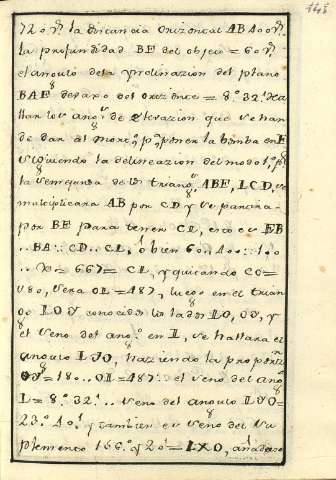 720 vs. la distancia orizontal AB 400 vs.
la profundidad BE del objeto = 60 vs.
el angulo de la ynclinazion del plano
BAE debaxo del orizonte = 8°. 32'. ha
llar los angs. de elevazion que se han
de dar al morto. pa. poner la bomba en E
siguiendo la delineazion del model. pr.
la semejansa de los triangs. ABE, LCD, se
multiplicara AB por CD y se partira
por BE para tener CL, esto es EB
.. BA :: CD .. CL, ó bien 60 .. 400 :: 100
.. X = 667 = CL, y quitando CO =
180, sera OL = 487, luego en el trian
go LOY conocidos los lados LO, OY, y
el seno del ango. en L, se hallara el
angulo LYO, haziendo la proporzn.
OY = 180 .. OL = 487 :: el seno del ango.
L = 8°. 32'. .. seno del angulo LYO =
23°. 40'. y tambien es seno del su
plemento 156°. y 20' = LXO, añadase